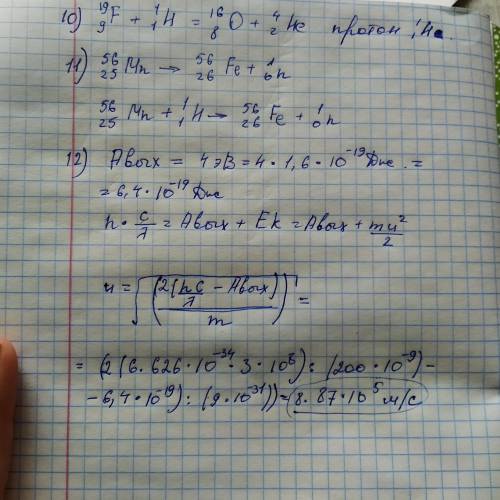 10) ¹⁹₉F + ¹₁H = ¹⁶₈O + ⁴₂He протон
11) ⁵⁶₂₅Mn → ⁵⁶₂₆Fe + ¹₀n
⁵⁶₂₅Mn + ¹₁H → ⁵⁶₂₆Fe + ¹₀n
12) Aвых = 4 эВ = 4 · 1,6 · 10⁻¹⁹ Дж. =
= 6,4 · 10⁻¹⁹ Дж
h · c/λ = Aвых + Ek = Aвых + mu²/2
u = √((2(hc/λ - Aвых))/m) =
= (2(6.626 · 10⁻³⁴ · 3 · 10⁸) : (200 · 10⁻⁹) -
- 6,4 · 10⁻¹⁹) : (9 · 10⁻³¹)) = (8.87 · 10⁵ м/с